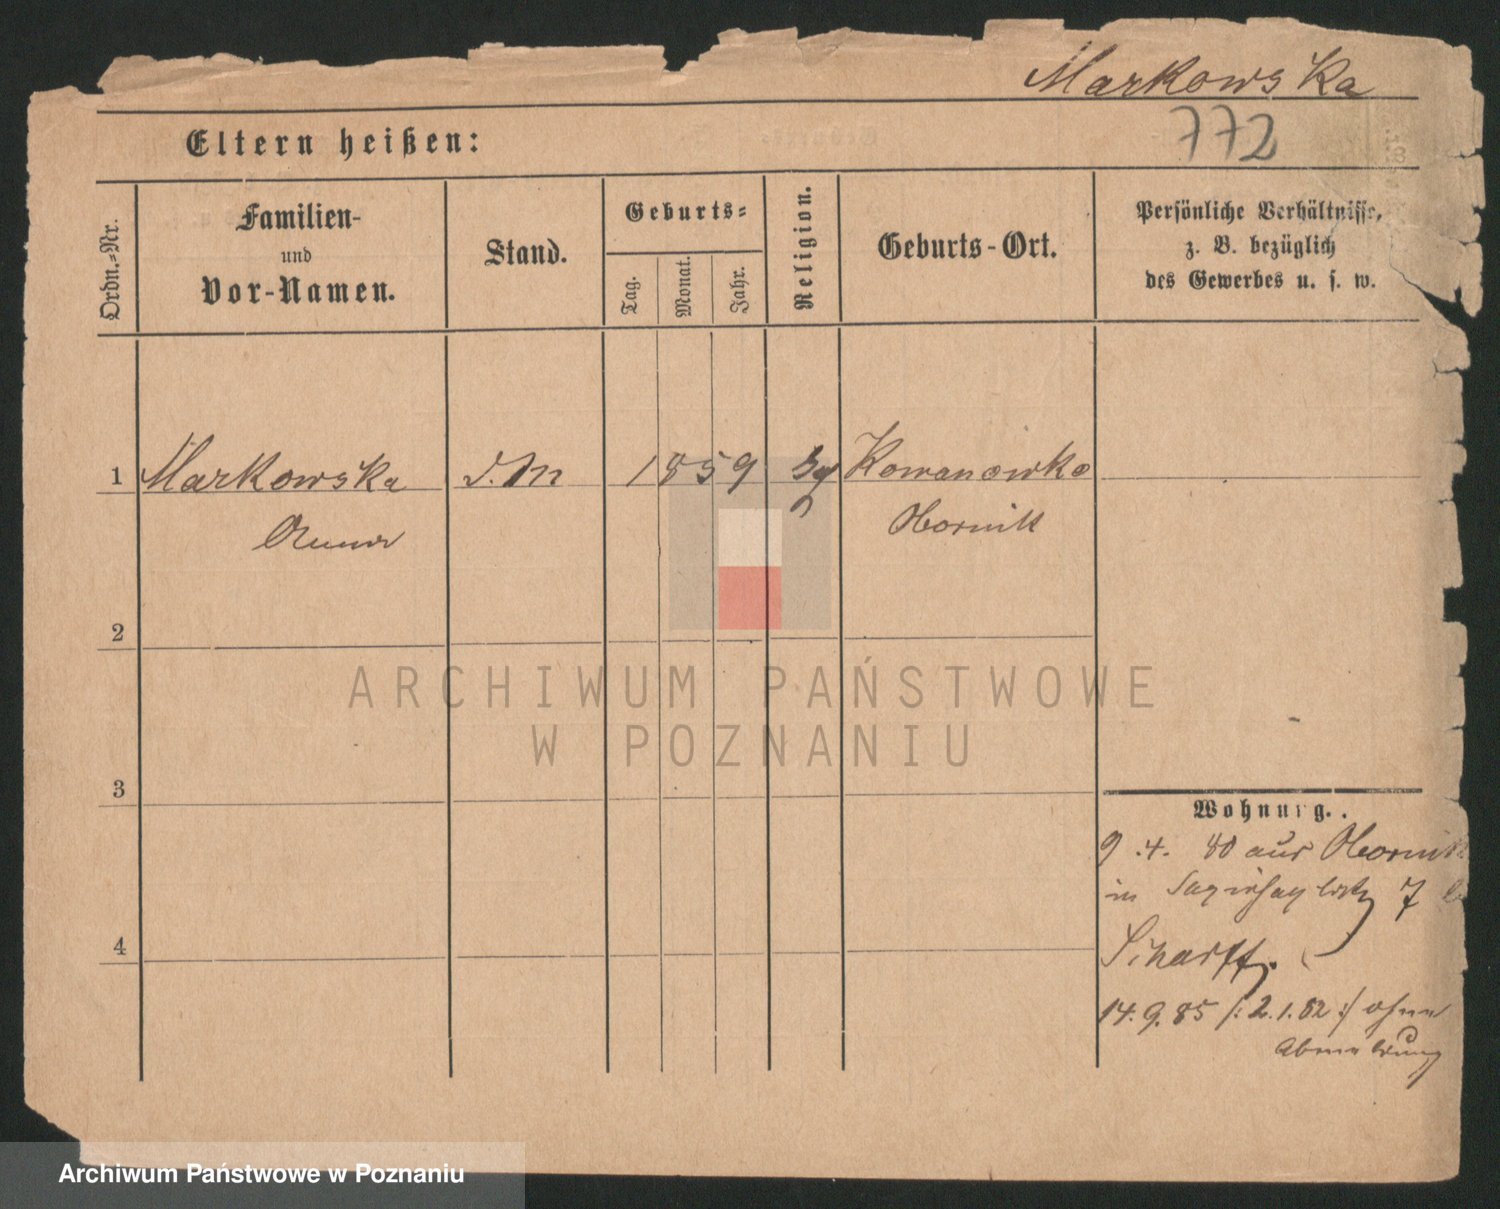 Markowska
772
Eltern heißen:
Ordn.-Nr.
Familien-
und
Vor-Namen.
Stand.
Geburts-
Tag.
Monat.
Jahr.
Religion.
Geburts-Ort.
Persönliche Verhältnisse,
z. B. bezüglich
des Gewerbes u. s. w.
1 Markowska D.M 1859 Kowanowko
Anna Obornik
2
3
4
ARCHIWUM PAŃSTWOWE
W POZNANIU
Wohnung.
9.4. 80 aus Obornik
in 7
Scharff.
14.9.85 /: 2.1.82 :/ ohne
Abmeldung
Archiwum Państwowe w Poznaniu